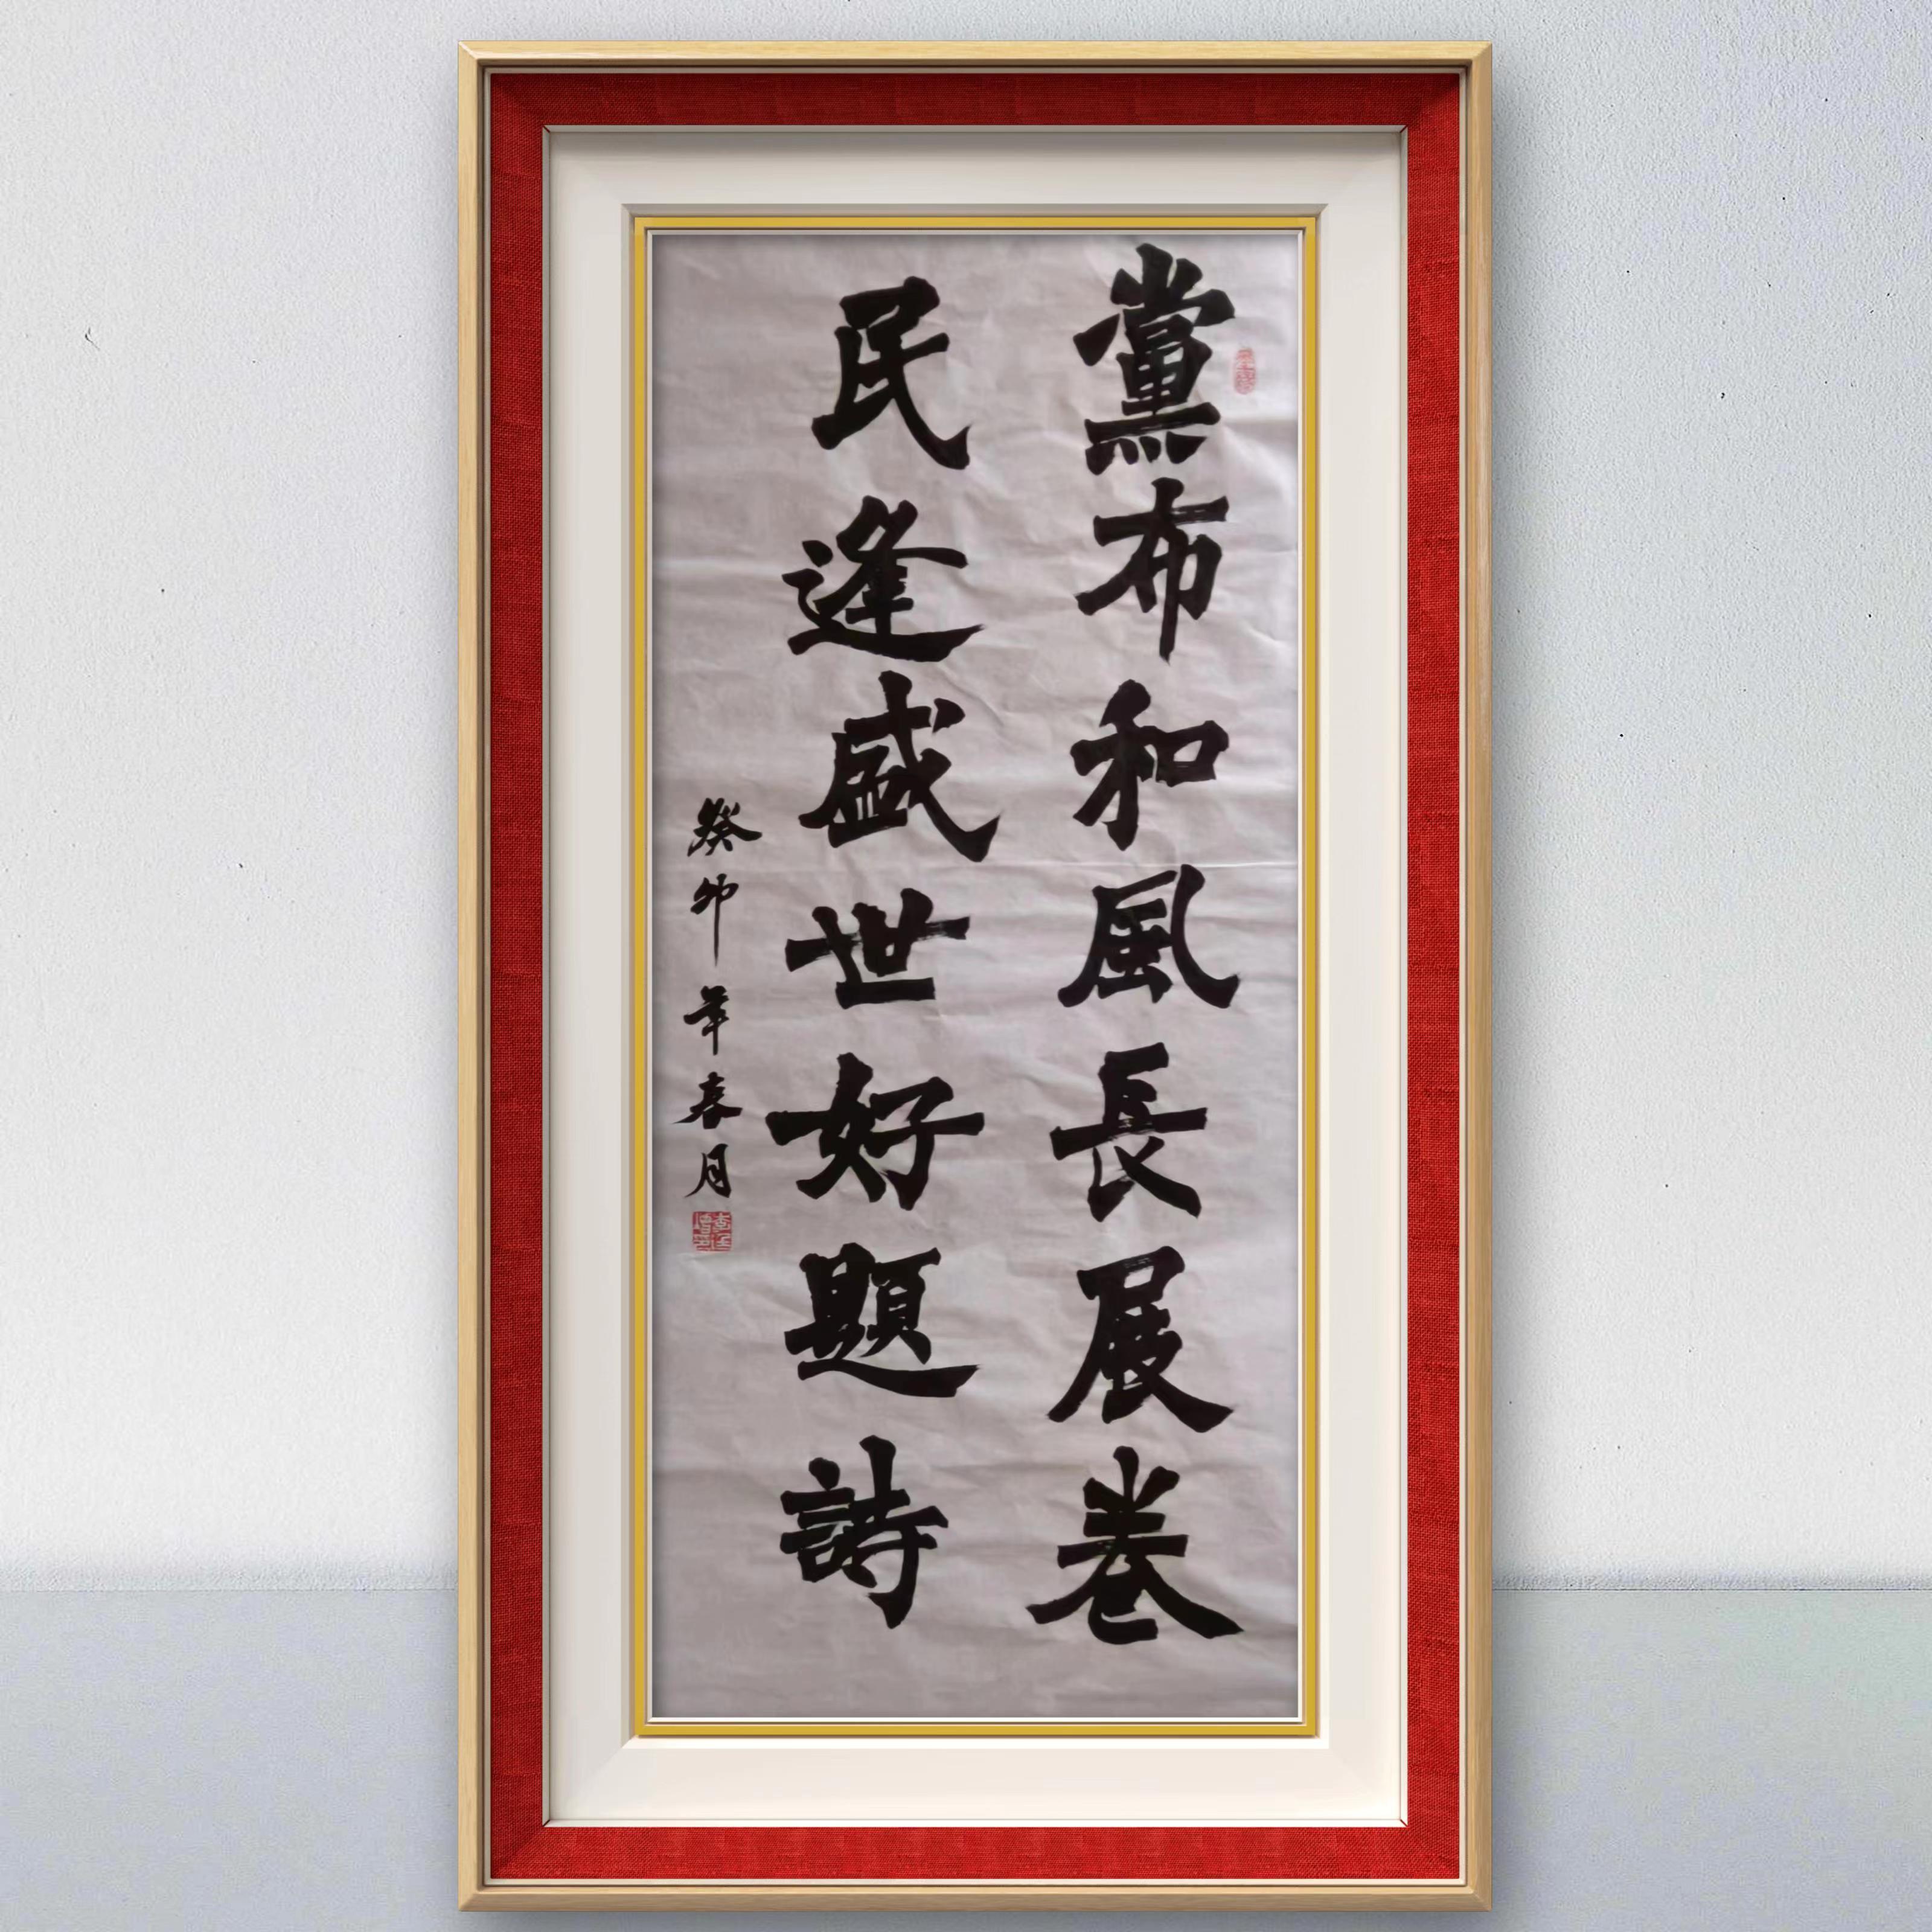 黨布和風長展卷
民逢盛世好題詩
癸卯年春月